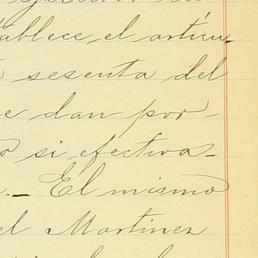 ablece el artícu-
sesenta del
e dan por
si efectiva-
.— El mismo
el Martinez